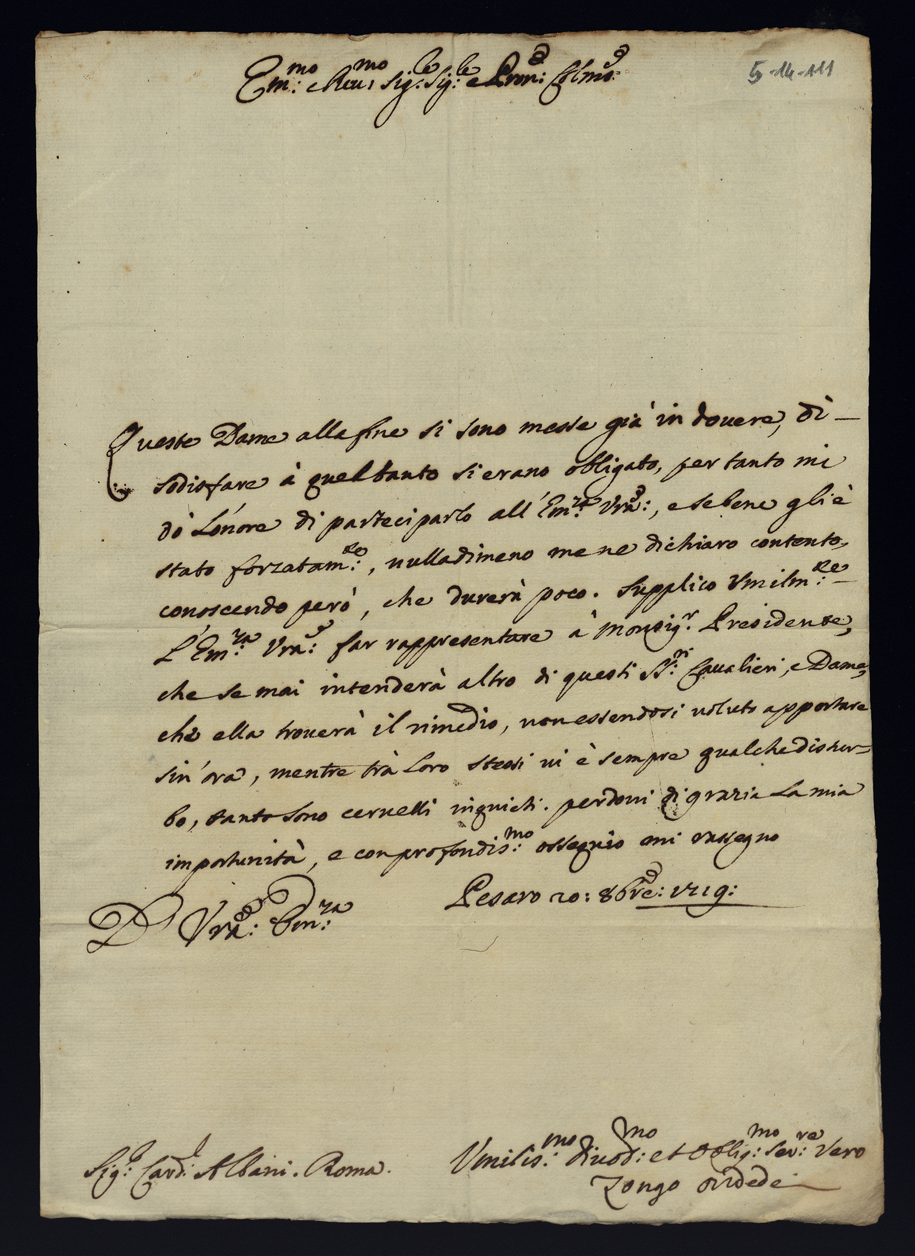 Em:mo e Reu:mo Sig:re Sig:re e Pron:e Colmo:
5-14-111
Queste Dame alla fine si sono messe già in douere, di
sodisfare à quel tanto si erano obligato, per tanto mi
dò L'onore di parteciparlo all'Em:za Vra:, e se bene gli è
stato forzatam:te, nulladimeno me ne dichiaro contento,
conoscendo però, che durerà poco. Supplico Vmilm:te
L'Em:za Vra: far rappresentare à Monsig:r Presidente,
che se mai intenderà altro di questi SS:ri Caualieri, e Dame,
che ella trouerà il rimedio, non essendosi uoluto apportare
sin'ora, mentre trà Loro stessi ui è sempre qualche distur-
bo, tanto sono ceruelli inquieti. perdoni di grazia La mia
importunità, e con profondis:mo ossequio mi rassegno
Pesaro 20: 8bre: 1719:
D Vra: Em:za
Sig:r Card:l Albani. Roma.
Vmilis:mo diuot:mo et Oblig:mo Ser:re Vero
Zongo Ondedei